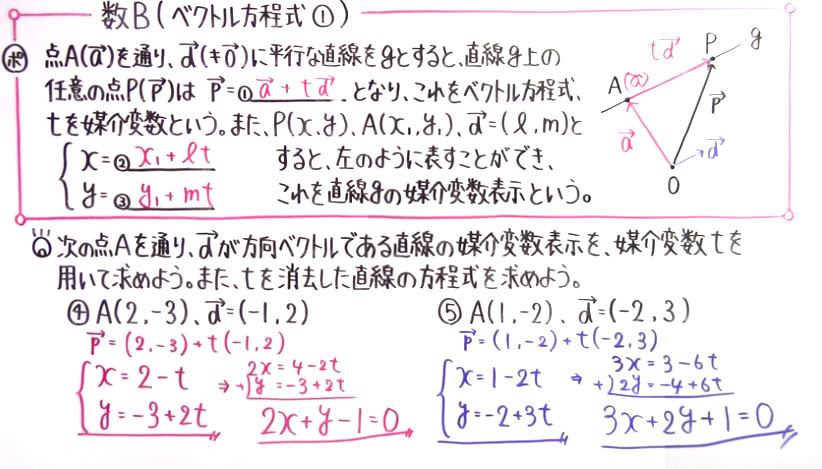 数B(ベクトル方程式①)
ポ 点A(a⃗)を通り、d⃗(≠0⃗)に平行な直線をgとすると、直線g上の
任意の点P(p⃗)は p⃗=①a⃗+td⃗ となり、これをベクトル方程式、
tを媒介変数という。また、P(x,y)、A(x₁,y₁)、d⃗=(l,m)と
x=②x₁+lt すると、左のように表すことができ、
y=③y₁+mt これを直線gの媒介変数表示という。
td⃗ P g
A(a⃗)
a⃗ p⃗ d⃗
O
次の点Aを通り、d⃗が方向ベクトルである直線の媒介変数表示を、媒介変数tを
用いて求めよう。また、tを消去した直線の方程式を求めよう。
④A(2,-3)、d⃗=(-1,2)
p⃗=(2,-3)+t(-1,2)
x=2-t ⇒ 2x=4-2t
y=-3+2t +)y=-3+2t
2x+y-1=0
⑤A(1,-2)、d⃗=(-2,3)
p⃗=(1,-2)+t(-2,3)
x=1-2t ⇒ 3x=3-6t
y=-2+3t +)2y=-4+6t
3x+2y+1=0